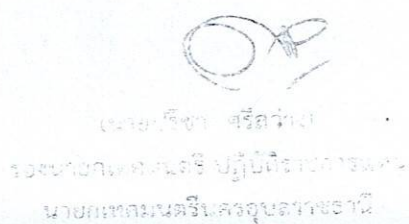 (นายปรีชา ศรีสว่าง)
รองนายกเทศมนตรี ปฏิบัติราชการแทน
นายกเทศมนตรีนครอุบลราชธานี